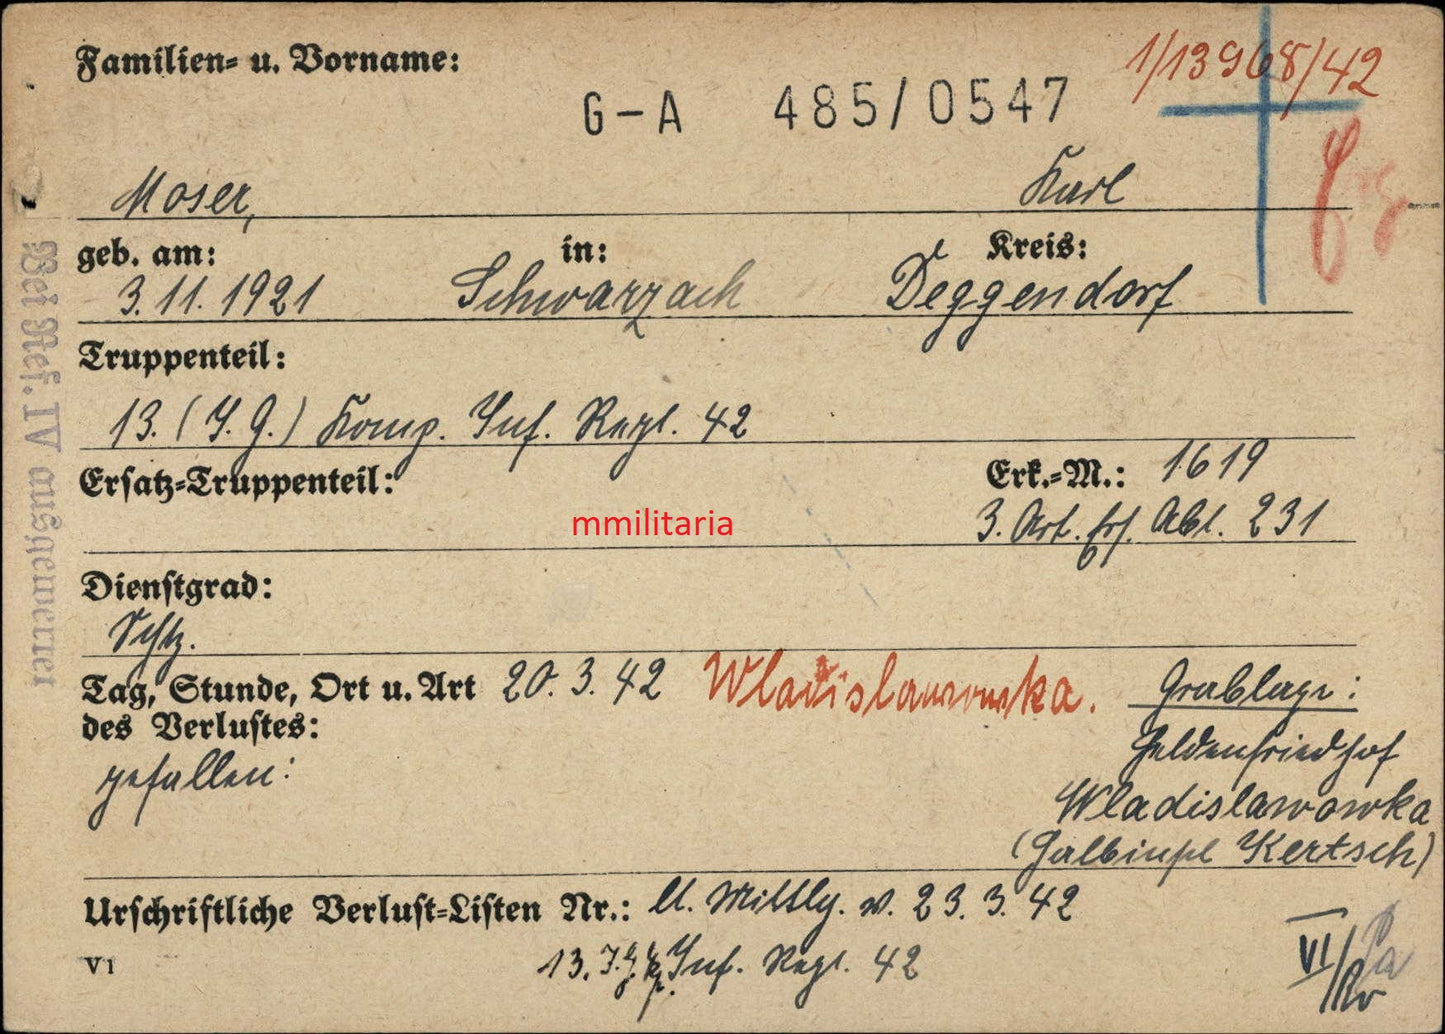 Familien- u. Vorname:
1/13968/42
G-A 485/0547
Moser, Karl
geb. am: in: Kreis:
3.11.1921 Schwarzach Deggendorf
Truppenteil:
13. (I. G.) Komp. Inf. Regt. 42
Ersatz-Truppenteil: Erk.-M.: 1619
mmilitaria
3. Art. Ers. Abt. 231
Dienstgrad:
Schtz.
Tag, Stunde, Ort u. Art 20. 3. 42 Wladislawowka. Grablage:
des Verlustes: Heldenfriedhof
gefallen: Wladislawowka
(Halbinsel Kertsch)
Urschriftliche Verlust-Listen Nr.: lt. Mittlg. v. 23. 3. 42
V1 13. I.G. Kp. Inf. Regt. 42
VI/
Bei Ref. IV ausgewertet